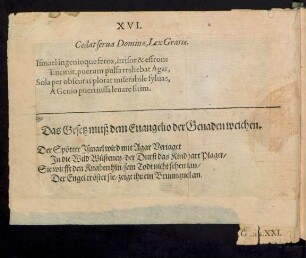 XVI.
Cedat serua Dominæ, Lex Gratiæ.
Ismael ingenioque ferox, irrisor & effrons
Eucitur, puerum pulsa trahebat Agar,
Sola per obscuras plorat miserabile syluas,
A Genio pueri iussa leuare sitim.
Das Gesetz muß dem Euangelio der Genaden weichen.
Der Spötter Ismael wird mit Agar Veriaget
In die Wild Wüsteney, der Durst das Kind hart Plaget/
Sie wirfft den Knaben hin/ sein Todt nicht sehen kan/
Der Engel tröstet sie/ zeigt ihr ein Brunnquel an.
XXI.